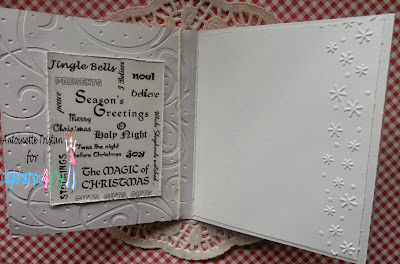 Jingle Bells
PRESENTS
I Believe
noel
peace
Season's
Greetings
believe
Merry
Christmas
O
Holy Night
'Twas the night
before Christmas
joy
STOCKINGS
The MAGIC of
CHRISTMAS
GIFTS, GIFTS, GIFTS
Antoinette Tristan
for